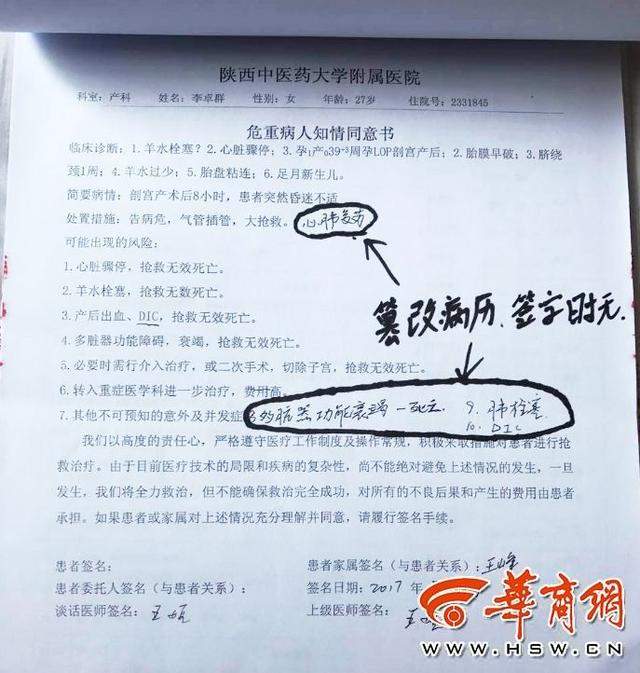 陕西中医药大学附属医院
科室:产科 姓名:李卓群 性别:女 年龄:27岁 住院号:2331845
危重病人知情同意书
临床诊断:1.羊水栓塞?2.心脏骤停;3.孕1产039+3周孕LOP剖宫产后;2.胎膜早破;3.脐绕
颈1周;4.羊水过少;5.胎盘粘连;6.足月新生儿。
简要病情:剖宫产术后8小时,患者突然昏迷不适
处置措施:告病危,气管插管,大抢救。心肺复苏
可能出现的风险:
1.心脏骤停,抢救无效死亡。
2.羊水栓塞,抢救无数死亡。
3.产后出血、DIC,抢救无效死亡。
篡改病历.签字时无.
4.多脏器功能障碍,衰竭,抢救无效死亡。
5.必要时需行介入治疗,或二次手术,切除子宫,抢救无效死亡。
6.转入重症医学科进一步治疗,费用高。
7.其他不可预知的意外及并发症 8多脏器功能衰竭—死亡 9.肺栓塞
10.DIC
我们以高度的责任心,严格遵守医疗工作制度及操作常规,积极采取措施对患者进行抢
救治疗。由于目前医疗技术的局限和疾病的复杂性,尚不能绝对避免上述情况的发生,一旦
发生,我们将全力救治,但不能确保救治完全成功,对所有的不良后果和产生的费用由患者
承担。如果患者或家属对上述情况充分理解并同意,请履行签名手续。
患者签名: 患者家属签名(与患者关系):王峰
患者委托人签名(与患者关系): 签名日期:2017年
谈话医师签名: 上级医师签名:
華商網
WWW.HSW.CN